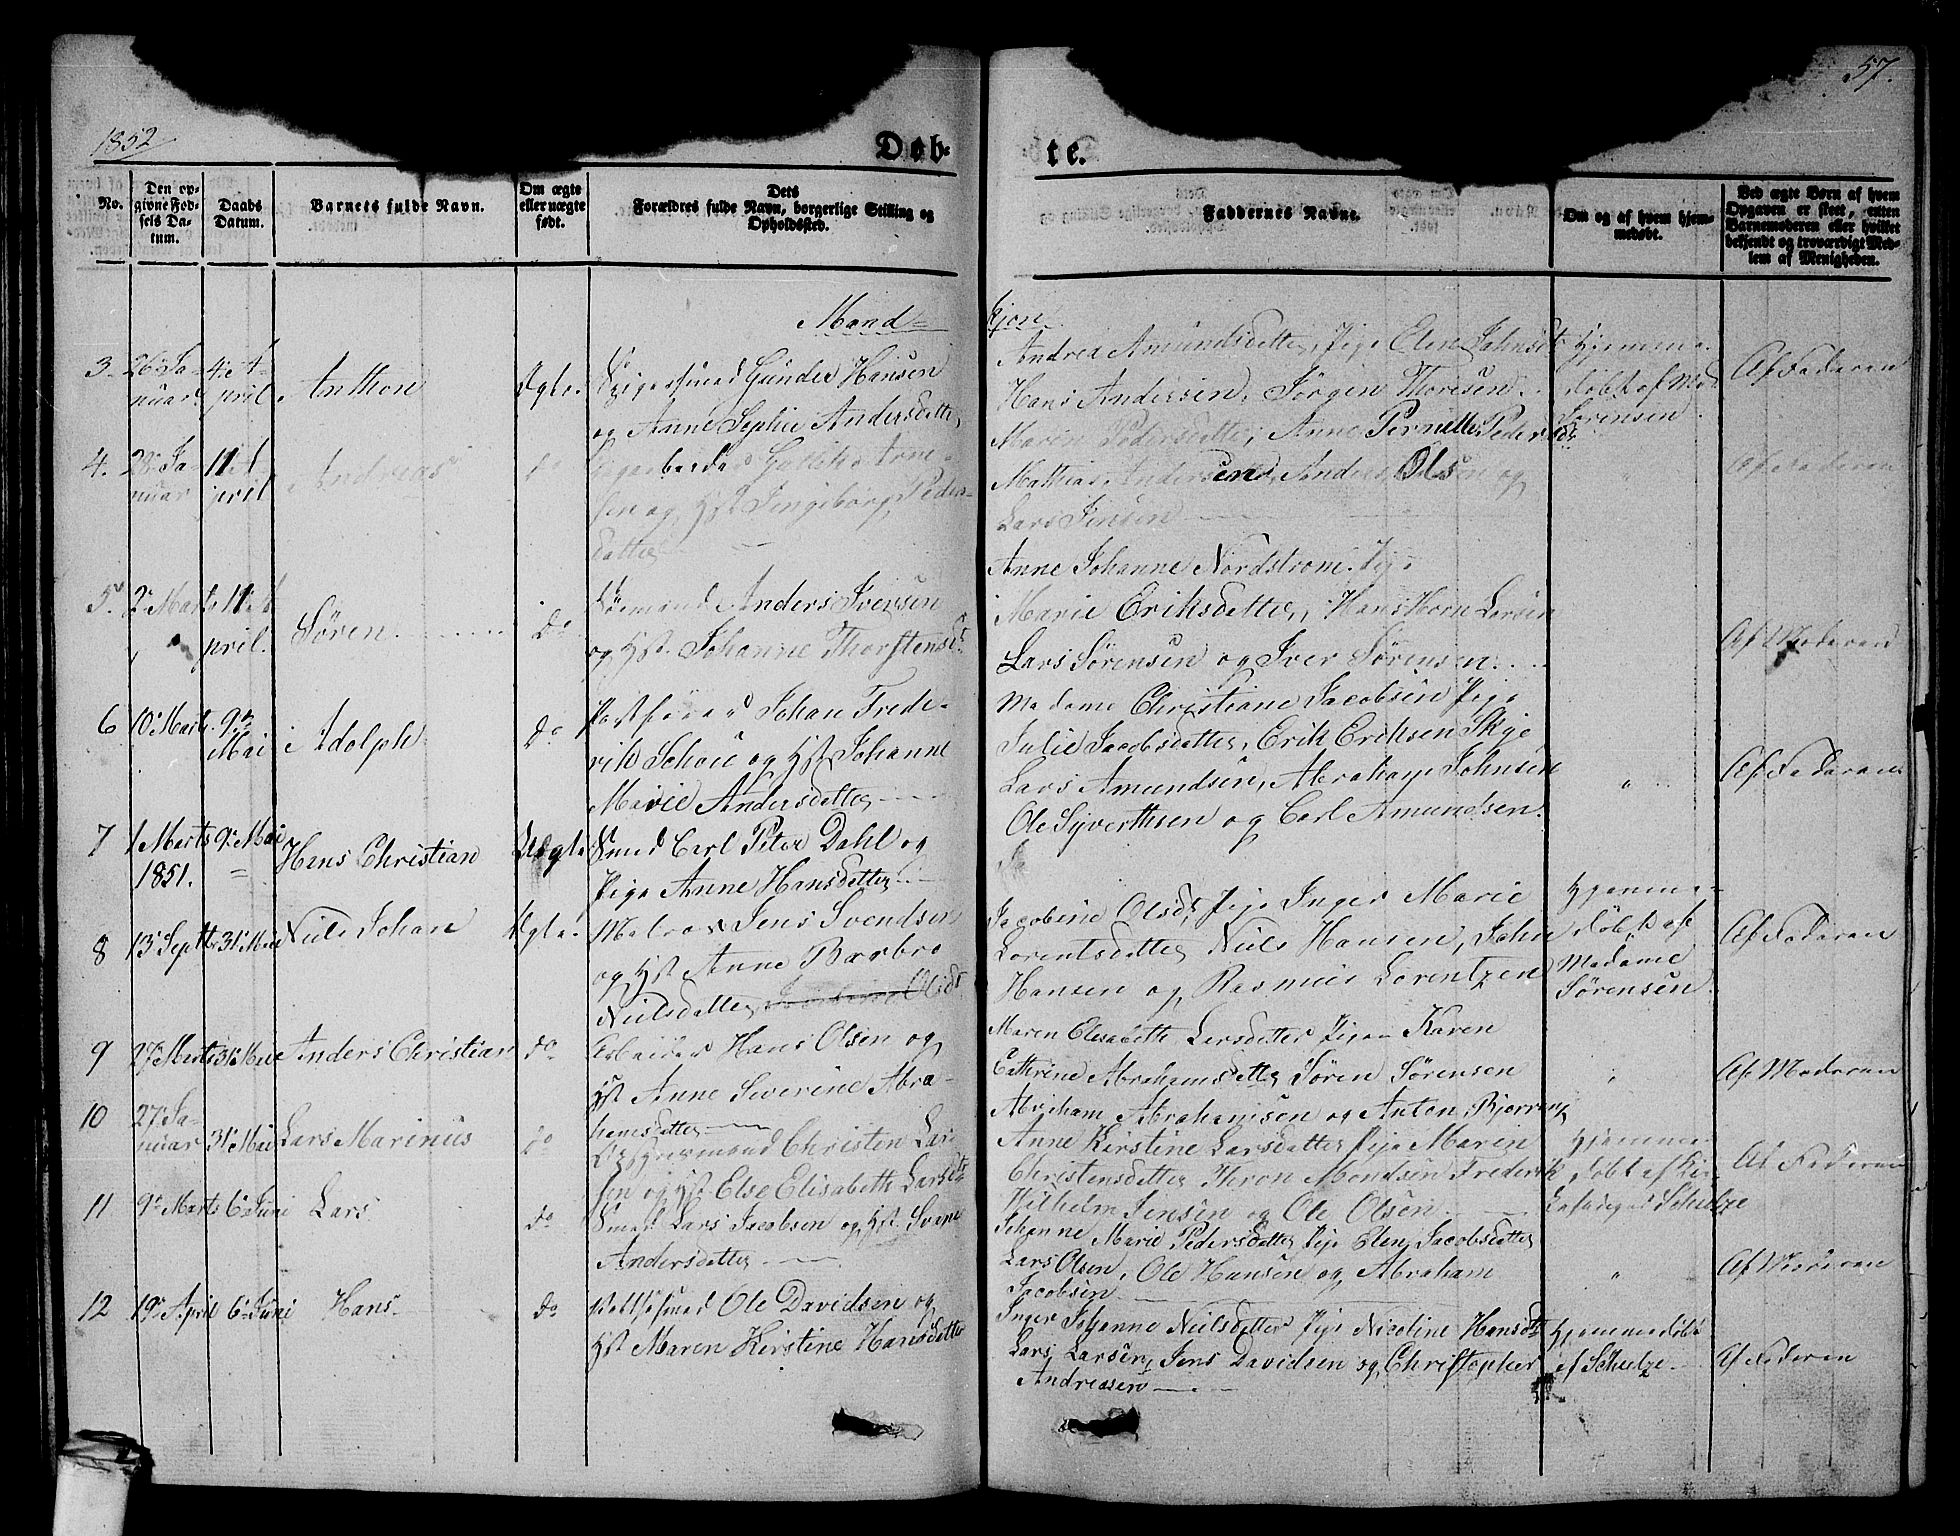 1852
57.
Døb-
te.
No.
Den op-
givne Fød-
sels Da-
tum.
Daabs
Datum.
Barnets fulde Navn.
Om ægte
eller uægte
født.
Dets
Forældres fulde Navn, borgerlige Stilling og
Opholdssted.
Faddernes Navne.
Om og af hvem hjem-
medøbt.
Ved ægte Børn af hvem
Opgaven er skeet, enten
Barnemoderen eller hvilket
bekjendt og troværdigt Med-
lem af Menigheden.
Mand-
kjøn
3. 26 Ja-
nuar
4de A-
pril
Anthon
Ægte
Gunder Hansen
og Anne Sophie Andersdatter,
Andrea Amundsdatter, Pige Elen Johnsdt
Hans Andersen, Jørgen Thoresen
Hjemme-
døbt af Mad
Sørensen
Af Faderen
4. 28 Ja-
nuar
11 A-
pril
Andreas
do
Gullik Arne-
sen og Hst Ingeborg Peders-
datter
Maren Pedersdatter, Anne Pernille Pedersdt
Mathias Andersen, Anders Olsen og
Lars Jensen
Af Faderen
5 2 Marts
11 A-
pril.
Søren
do
Anders Iversen
og Hst. Johanne Thorstensdt.
Anne Johanne Nordstrøm. Pige
Marie Eriksdatter, Hans Horn Larsen
Lars Sørensen og Iver Sørensen
Af Moderen
6 10 Marts
9de
Mai
Adolph
do
Johan Frede-
rik Schou og Hst Johanne
Marie Andersdatter
Madame Christiane Jacobsen Pige
Julie Jacobsdatter, Erik Eriksen Skye
Lars Amundsen, Abraham Johnsen
Ole Syverthsen og Carl Amundsen.
"
Af Faderen
7 1 Marts
1851.
9 Mai
Hans Christian
Uægte
Smed Carl Peter Dahl og
Pige Anne Hansdatter
8 13 Septbr
31 Mai
Niels Johan
Ægte
Matros Jens Svendsen
og Hst Anne Barbro
Nielsdatter Olsdt
Jacobine Olsdt, Pige Inger Marie
Lorentsdatter Niels Hansen, John
Hansen og Rasmus Lorentzen
Hjemme-
døbt af
Madame
Sørensen
Af Faderen
9 27 Marts
31 Mai
Anders Christian
do
Arbeider Hans Olsen og
Hst Anne Severine Abra-
hamsdatter
Maren Elisabeth Larsdatter Pigen Karen
Cathrine Abrahamsdatter Søren Sørensen
Abraham Abrahamsen og Anton Bjørnsen
"
Af Moderen
10 27 Ja-
nuar
31 Mai
Lars Marinus
do
Christen Lar-
sen og Hst Else Elisabeth Larsdt
Anne Kirstine Larsdatter Pige Maren
Christensdatter Theron Mondsen Frederik
Wilhelm Jensen og Ole Olsen
Hjemme-
døbt af Kir-
Schulze
Af Faderen
11 9 Marts
6 Juni
Lars
do
Smed Lars Jacobsen og Hst.
Andersdatter
Johanne Marie Pedersdatter Pige Elen Jacobsdatter
Lars Olsen, Ole Hansen og Abraham
Jacobsen
"
Af Moderen
12 19 April
6 Juni
Hans
do
Ole Davidsen og
Hst Maren Kirstine Hansdatter
Inger Johanne Nielsdatter Pige Nicoline Hansdt
Lars Larsen, Jens Davidsen og Christopher
Andreasen
Hjemmedøbt
af Schulze
Af Faderen